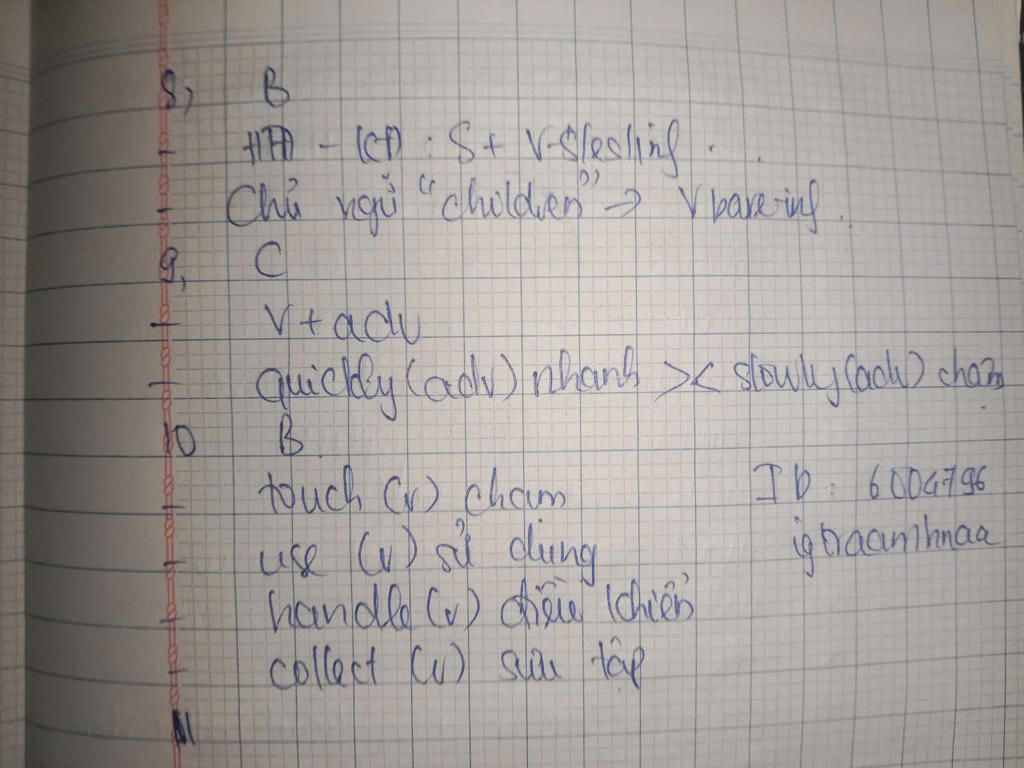 8, B
- HTĐ - KĐ : S + V-s/es/inf.
- Chủ ngữ "children" → V bare-inf.
9, C
- V + adv
- quickly (adv) nhanh >< slowly (adv) chậm
10 B.
- touch (v) chạm
- use (v) sử dụng
- handle (v) điều khiển
- collect (v) sưu tập
ID: 6004796
11